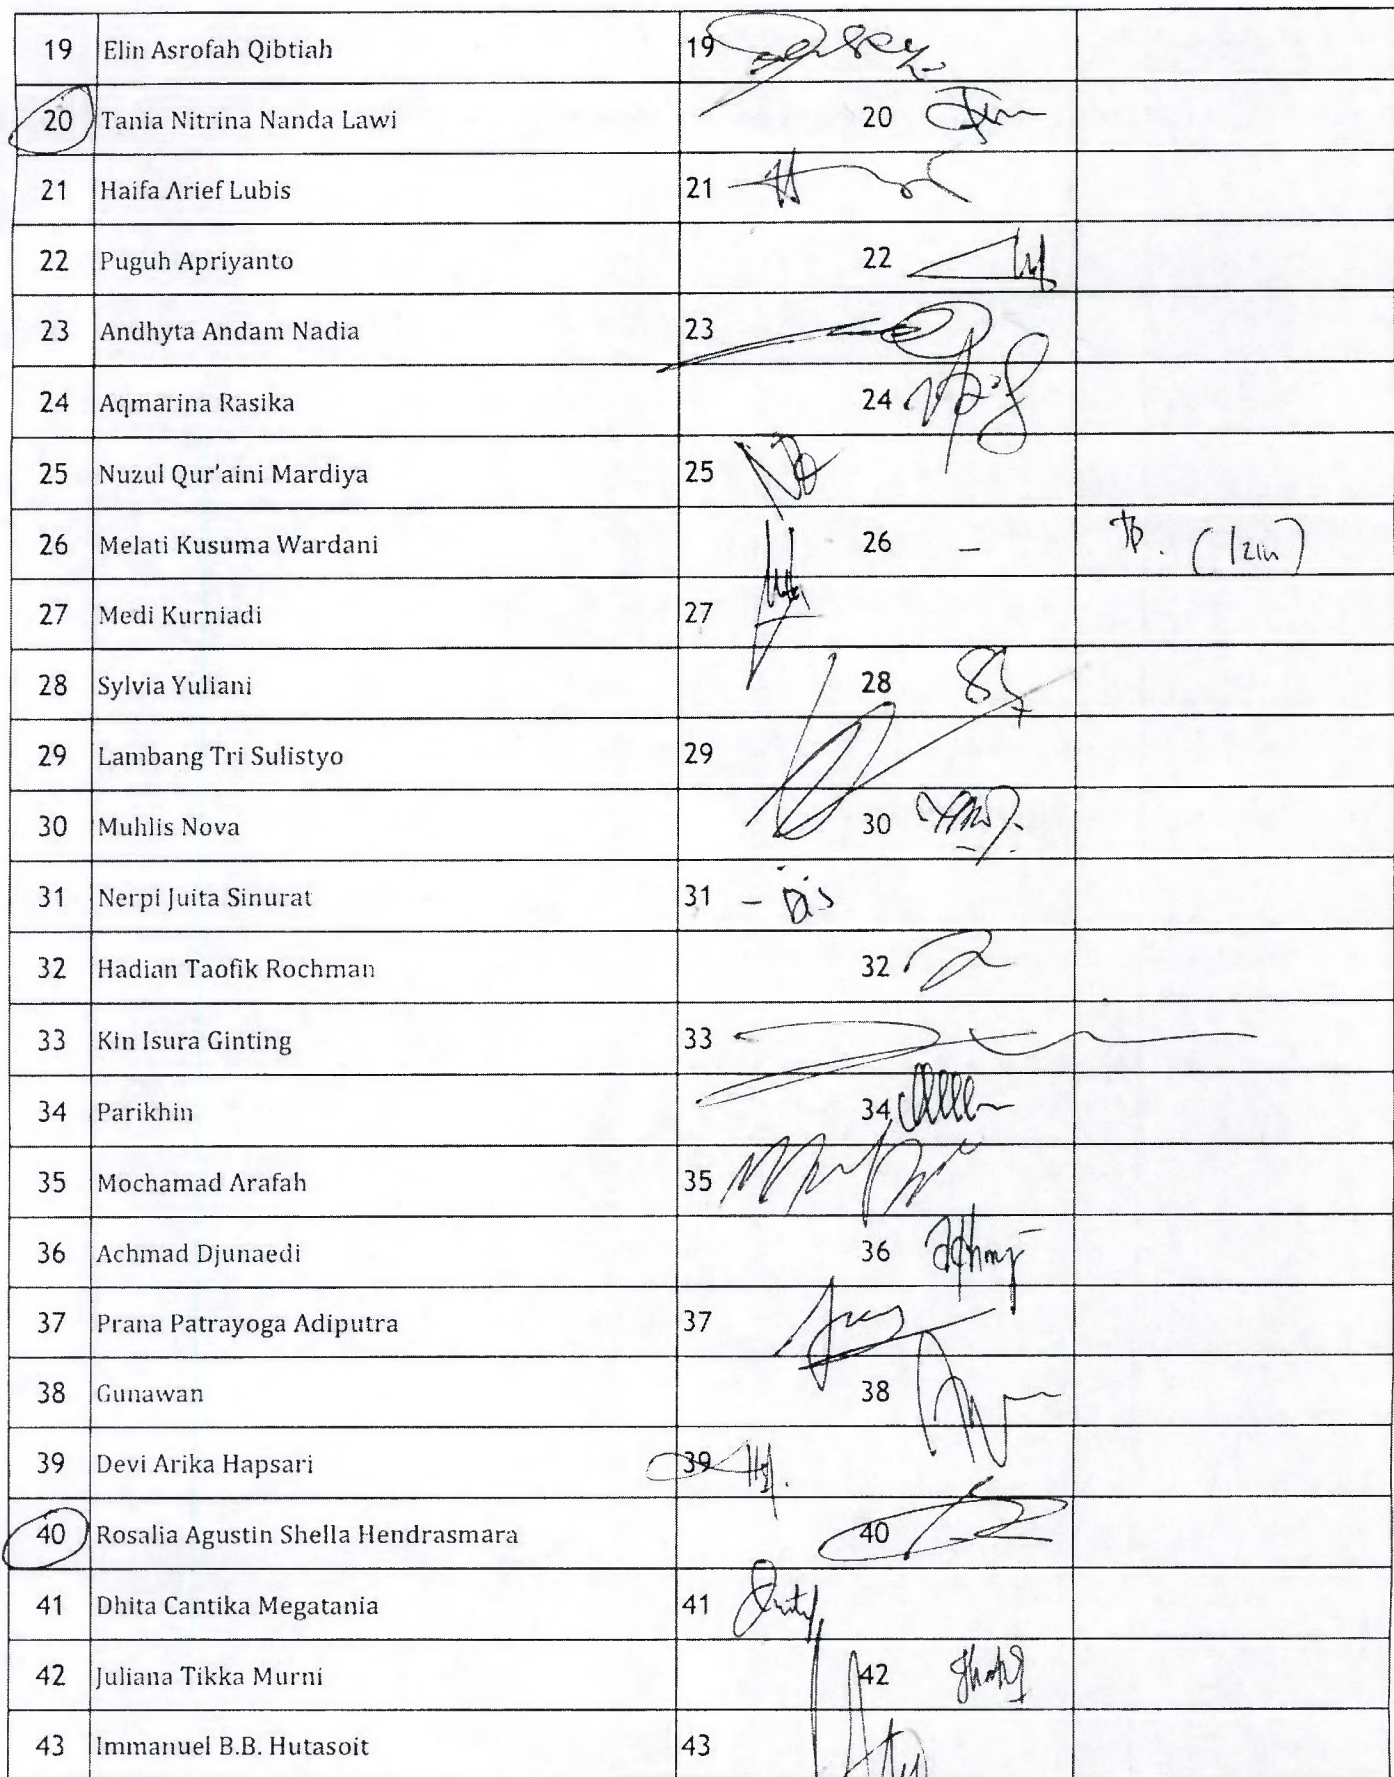 19 Elin Asrofah Qibtiah 19
20 Tania Nitrina Nanda Lawi 20
21 Haifa Arief Lubis 21
22 Puguh Apriyanto 22
23 Andhyta Andam Nadia 23
24 Aqmarina Rasika 24
25 Nuzul Qur'aini Mardiya 25
26 Melati Kusuma Wardani 26 - (Izin)
27 Medi Kurniadi 27
28 Sylvia Yuliani 28
29 Lambang Tri Sulistyo 29
30 Muhlis Nova 30
31 Nerpi Juita Sinurat 31 -
32 Hadian Taofik Rochman 32
33 Kin Isura Ginting 33
34 Parikhin 34
35 Mochamad Arafah 35
36 Achmad Djunaedi 36
37 Prana Patrayoga Adiputra 37
38 Gunawan 38
39 Devi Arika Hapsari 39
40 Rosalia Agustin Shella Hendrasmara 40
41 Dhita Cantika Megatania 41
42 Juliana Tikka Murni 42
43 Immanuel B.B. Hutasoit 43